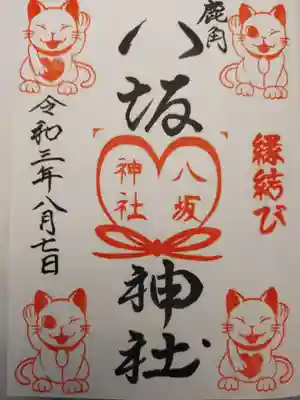 鹿角
八坂神社
縁結び
八坂
神社
令和三年八月七日